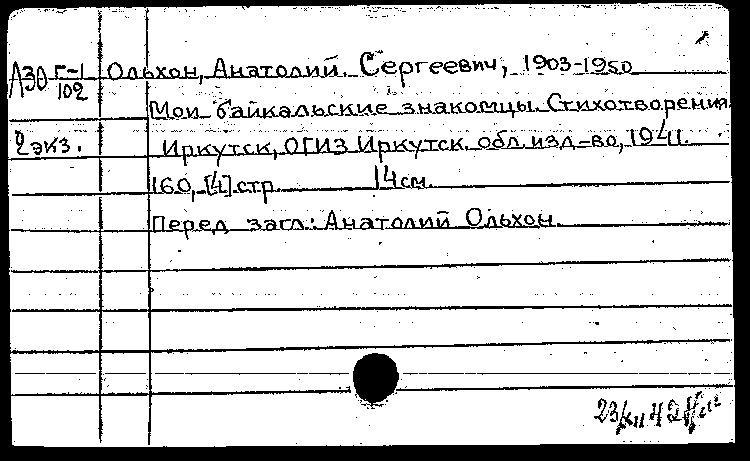 АЗО Г-1 Ольхон, Анатолий. Сергеевич, 1903-1950
102
Мои байкальские знакомцы. Стихотворения.
2 экз. Иркутск, ОГИЗ Иркутск. обл. изд-во, 1941.
160, [4] стр. 14 см.
Перед загл.: Анатолий Ольхон.
23/XII 42